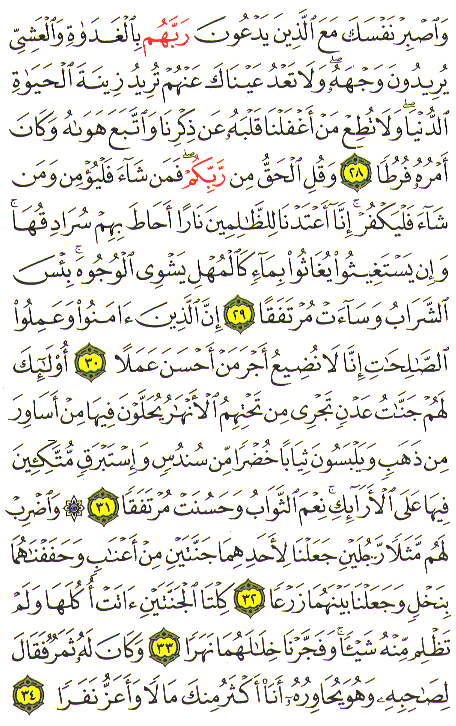 وَٱصۡبِرۡ نَفۡسَكَ مَعَ ٱلَّذِينَ يَدۡعُونَ رَبَّهُم بِٱلۡغَدَوٰةِ وَٱلۡعَشِيِّ
يُرِيدُونَ وَجۡهَهُۥۖ وَلَا تَعۡدُ عَيۡنَاكَ عَنۡهُمۡ تُرِيدُ زِينَةَ ٱلۡحَيَوٰةِ
ٱلدُّنۡيَاۖ وَلَا تُطِعۡ مَنۡ أَغۡفَلۡنَا قَلۡبَهُۥ عَن ذِكۡرِنَا وَٱتَّبَعَ هَوَىٰهُ وَكَانَ
أَمۡرُهُۥ فُرُطٗا ٢٨ وَقُلِ ٱلۡحَقُّ مِن رَّبِّكُمۡۖ فَمَن شَآءَ فَلۡيُؤۡمِن وَمَن
شَآءَ فَلۡيَكۡفُرۡۚ إِنَّآ أَعۡتَدۡنَا لِلظَّـٰلِمِينَ نَارًا أَحَاطَ بِهِمۡ سُرَادِقُهَاۚ
وَإِن يَسۡتَغِيثُواْ يُغَاثُواْ بِمَآءٖ كَٱلۡمُهۡلِ يَشۡوِي ٱلۡوُجُوهَۚ بِئۡسَ
ٱلشَّرَابُ وَسَآءَتۡ مُرۡتَفَقًا ٢٩ إِنَّ ٱلَّذِينَ ءَامَنُواْ وَعَمِلُواْ
ٱلصَّـٰلِحَـٰتِ إِنَّا لَا نُضِيعُ أَجۡرَ مَنۡ أَحۡسَنَ عَمَلًا ٣٠ أُوْلَـٰٓئِكَ
لَهُمۡ جَنَّـٰتُ عَدۡنٖ تَجۡرِي مِن تَحۡتِهِمُ ٱلۡأَنۡهَـٰرُ يُحَلَّوۡنَ فِيهَا مِنۡ أَسَاوِرَ
مِن ذَهَبٖ وَيَلۡبَسُونَ ثِيَابًا خُضۡرٗا مِّن سُندُسٖ وَإِسۡتَبۡرَقٖ مُّتَّكِـِٔينَ
فِيهَا عَلَى ٱلۡأَرَآئِكِۚ نِعۡمَ ٱلثَّوَابُ وَحَسُنَتۡ مُرۡتَفَقٗا ٣١ ۞ وَٱضۡرِبۡ
لَهُم مَّثَلٗا رَّجُلَيۡنِ جَعَلۡنَا لِأَحَدِهِمَا جَنَّتَيۡنِ مِنۡ أَعۡنَـٰبٖ وَحَفَفۡنَـٰهُمَا
بِنَخۡلٖ وَجَعَلۡنَا بَيۡنَهُمَا زَرۡعٗا ٣٢ كِلۡتَا ٱلۡجَنَّتَيۡنِ ءَاتَتۡ أُكُلَهَا وَلَمۡ
تَظۡلِم مِّنۡهُ شَيۡـٔٗاۚ وَفَجَّرۡنَا خِلَـٰلَهُمَا نَهَرٗا ٣٣ وَكَانَ لَهُۥ ثَمَرٞ فَقَالَ
لِصَـٰحِبِهِۦ وَهُوَ يُحَاوِرُهُۥٓ أَنَا۠ أَكۡثَرُ مِنكَ مَالٗا وَأَعَزُّ نَفَرٗا ٣٤